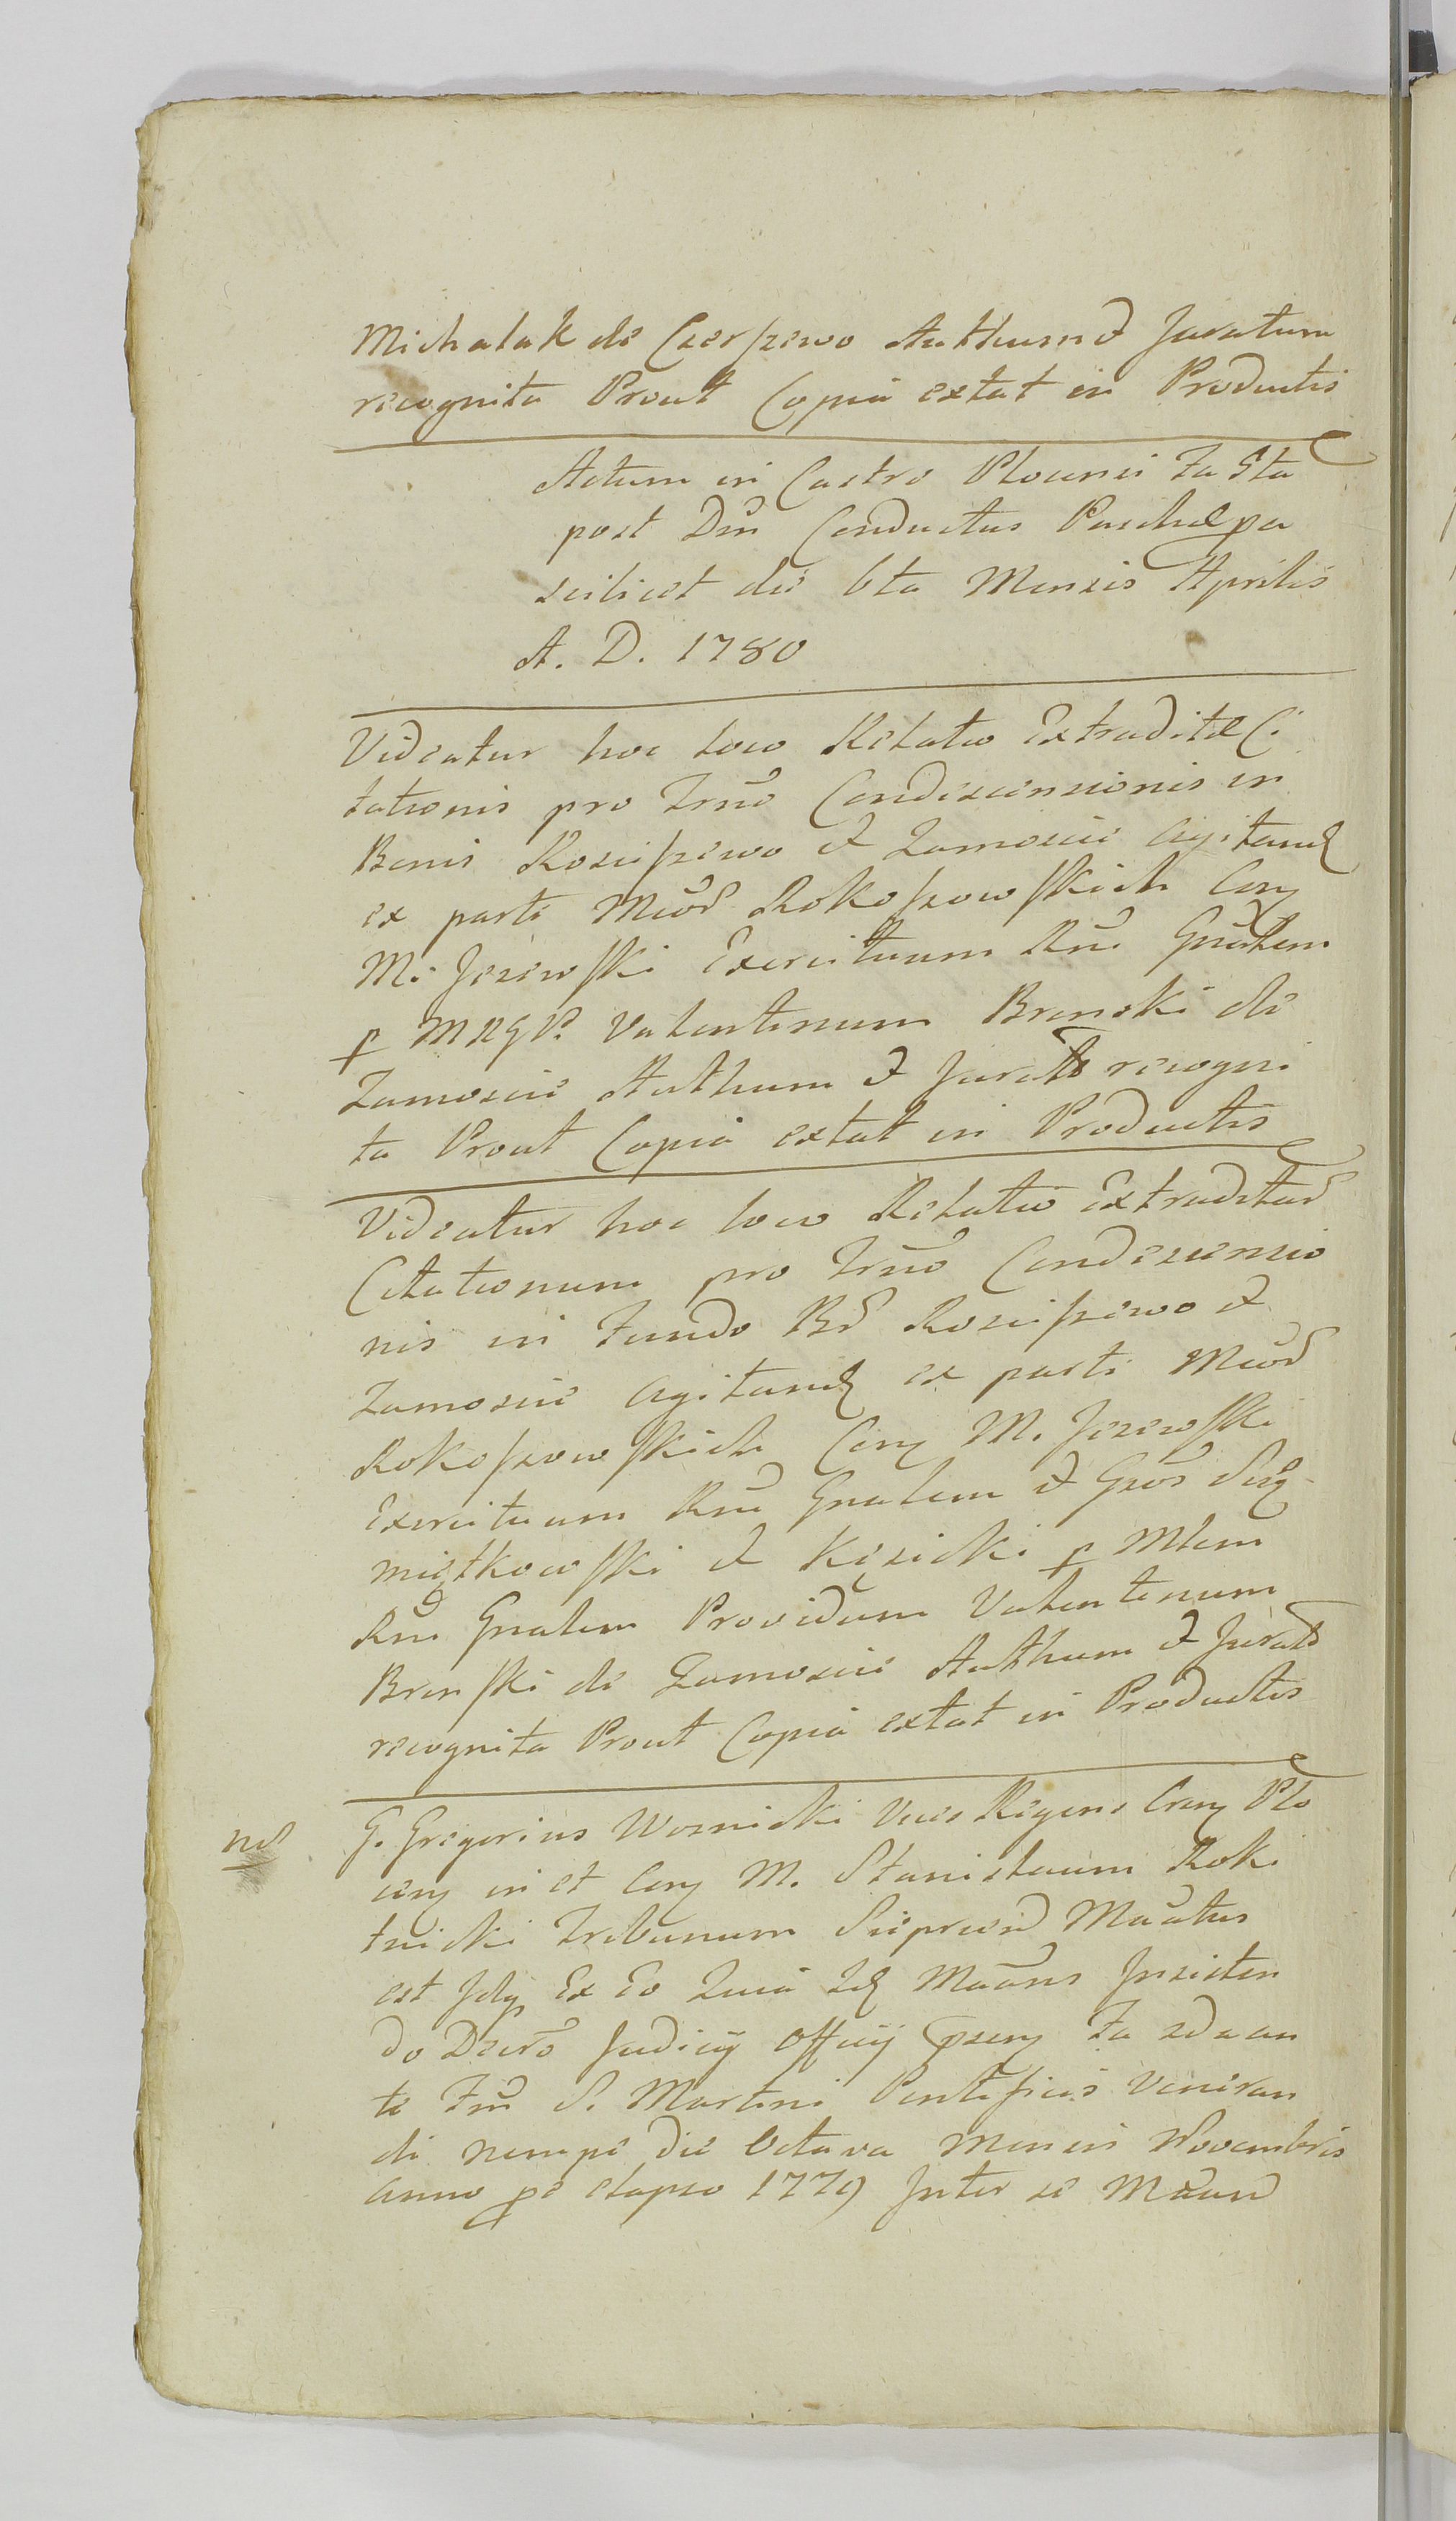 Michalak de Czerszewo Authum & Juratum
recognita Prout Copia extat in Productis
Actum in Castro Plocensi Fa 5ta
post Dm̃ Conductus Paschæ pa
scilicet die 6ta Mensis Aprilis
A. D. 1780
Videatur hoc loco Relatio Extraditæ Ci
tationis pro Trñó Condescensionis in
Bonis Rosciszewo & Zamoscie Agitand
ex parte Mcor Rokoszowskich Cong
M. Jezewski Exercituum Rñi Gnãlem
p MRGP. Valentinum Brenski de
Zamoscie Authum & Jurat recogni
ta Prout Copia extat in Productis
Videatur hoc loco Relatio Extraditar
Citationum pro Trñó Condescensio
nis in Fundo Br Rosciszewo &
Zamoscie Agitand ex parte Mcor
Rokoszowskich Cong M. Jezewski
Exercituum Rñi Gnalem & Gsos
miętkowski & Kęsicki p Mlem
Rñi Gnalem Providum Valentinum
Brenski de Zamoscie Authum & Jurat
recognita Prout Copia extat in Productis
nd G. Gregorius Woznicki Vices Regens Crens Plo
cens in et Cong M. Stanislaum Roki
tnicki Tribunum Sieprcen Mãtus
est Ex Eo Quia Mãns Insisten
do Dcrō Judicij Officij psens Fa 2da an
te Fm̃ S. Martini Pontificis Veneran
di nempe Die Octava Mensis Novembris
Anno pe elapso 1779 Inter se Mãun